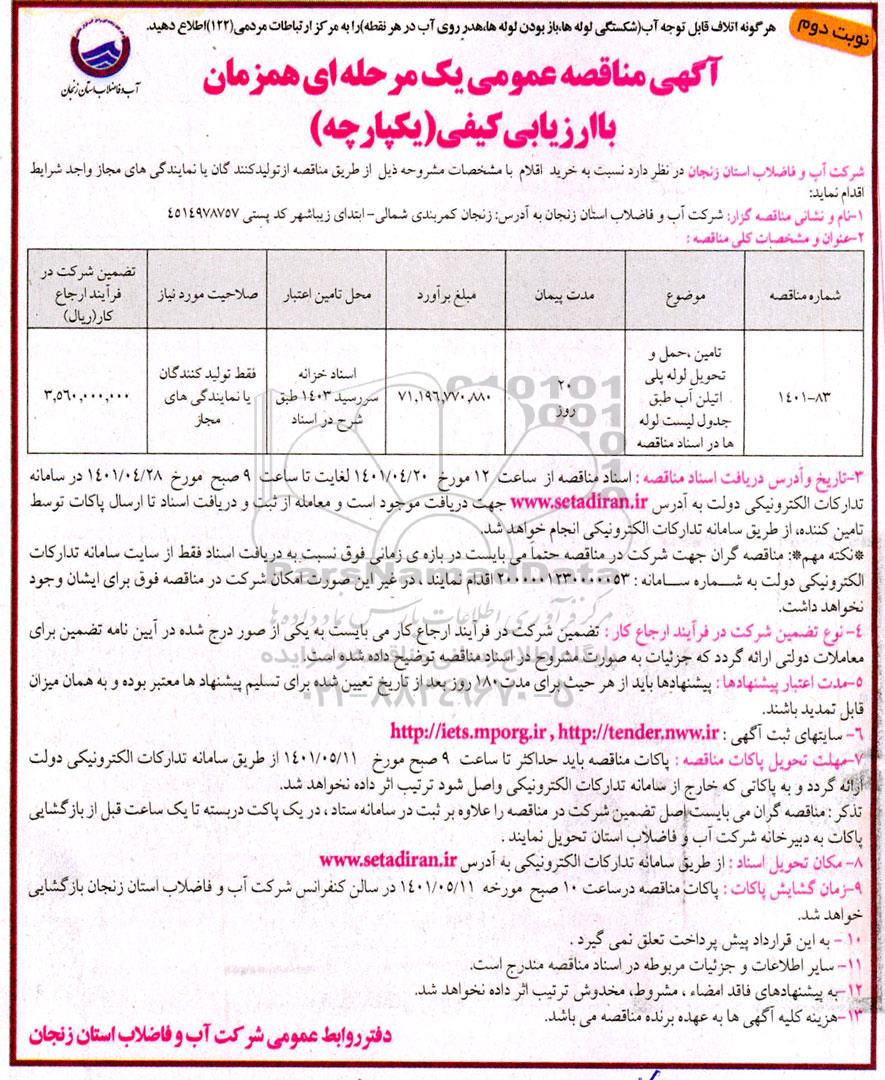 نوبت دوم
هرگونه اتلاف قابل توجه آب(شکستگی لوله ها،باز بودن لوله ها،هدر روی آب در هر نقطه)را به مرکز ارتباطات مردمی(۱۲۲)اطلاع دهید.
آب و فاضلاب استان زنجان
آگهی مناقصه عمومی یک مرحله ای همزمان
باارزیابی کیفی(یکپارچه)
شرکت آب و فاضلاب استان زنجان در نظر دارد نسبت به خرید اقلام با مشخصات مشروحه ذیل از طریق مناقصه ازتولیدکنند گان یا نمایندگی های مجاز واجد شرایط
اقدام نماید:
۱-نام و نشانی مناقصه گزار: شرکت آب و فاضلاب استان زنجان به آدرس: زنجان کمربندی شمالی- ابتدای زیباشهر کد پستی ۴۵۱۴۹۷۸۷۵۷
۲-عنوان و مشخصات کلی مناقصه :
شماره مناقصه
موضوع
مدت پیمان
مبلغ برآورد
محل تامین اعتبار
صلاحیت مورد نیاز
تضمین شرکت در
فرآیند ارجاع
کار(ریال)
۱۴۰۱-۸۳
تامین ،حمل و
تحویل لوله پلی
اتیلن آب طبق
جدول لیست لوله
ها در اسناد مناقصه
۲۰
روز
۷۱,۱۹۶,۷۷۰,۸۸۰
اسناد خزانه
سررسید ۱۴۰۳ طبق
شرح در اسناد
فقط تولید کنندگان
یا نمایندگی های
مجاز
۳,۵۶۰,۰۰۰,۰۰۰
۳-تاریخ وآدرس دریافت اسناد مناقصه : اسناد مناقصه از ساعت ۱۲ مورخ ۱۴۰۱/۰۴/۲۰ لغایت تا ساعت ۹ صبح مورخ ۱۴۰۱/۰۴/۲۸ در سامانه
تدارکات الکترونیکی دولت به آدرس www.setadiran.ir جهت دریافت موجود است و معامله از ثبت و دریافت اسناد تا ارسال پاکات توسط
تامین کننده، از طریق سامانه تدارکات الکترونیکی انجام خواهد شد.
*نکته مهم*: مناقصه گران جهت شرکت در مناقصه حتما می بایست در بازه ی زمانی فوق نسبت به دریافت اسناد فقط از سایت سامانه تدارکات
الکترونیکی دولت به شماره سامانه : ۲۰۰۰۰۰۱۲۳۰۰۰۰۰۵۳ اقدام نمایند .در غیر این صورت امکان شرکت در مناقصه فوق برای ایشان وجود
نخواهد داشت.
۴- نوع تضمین شرکت در فرآیند ارجاع کار : تضمین شرکت در فرآیند ارجاع کار می بایست به یکی از صور درج شده در آیین نامه تضمین برای
معاملات دولتی ارائه گردد که جزئیات به صورت مشروح در اسناد مناقصه توضیح داده شده است.
۵-مدت اعتبار پیشنهادها : پیشنهادها باید از هر حیث برای مدت ۱۸۰ روز بعد از تاریخ تعیین شده برای تسلیم پیشنهاد ها معتبر بوده و به همان میزان
قابل تمدید باشند.
۶- سایتهای ثبت آگهی : http://iets.mporg.ir , http://tender.nww.ir
۷-مهلت تحویل پاکات مناقصه : پاکات مناقصه باید حداکثر تا ساعت ۹ صبح مورخ ۱۴۰۱/۰۵/۱۱ از طریق سامانه تدارکات الکترونیکی دولت
ارائه گردد و به پاکاتی که خارج از سامانه تدارکات الکترونیکی واصل شود ترتیب اثر داده نخواهد شد.
تذکر : مناقصه گران می بایست اصل تضمین شرکت در مناقصه را علاوه بر ثبت در سامانه ستاد ، در یک پاکت دربسته تا یک ساعت قبل از بازگشایی
پاکات به دبیرخانه شرکت آب و فاضلاب استان تحویل نمایند .
۸- مکان تحویل اسناد : از طریق سامانه تدارکات الکترونیکی به آدرس www.setadiran.ir
۹-زمان گشایش پاکات : پاکات مناقصه درساعت ۱۰ صبح مورخه ۱۴۰۱/۰۵/۱۱ در سالن کنفرانس شرکت آب و فاضلاب استان زنجان بازگشایی
خواهد شد.
۱۰ - به این قرارداد پیش پرداخت تعلق نمی گیرد .
۱۱- سایر اطلاعات و جزئیات مربوطه در اسناد مناقصه مندرج است.
۱۲-به پیشنهادهای فاقد امضاء ، مشروط، مخدوش ترتیب اثر داده نخواهد شد.
۱۳-هزینه کلیه آگهی ها به عهده برنده مناقصه می باشد.
دفتر روابط عمومی شرکت آب و فاضلاب استان زنجان
ParsNamadData
مرکز فرآوری اطلاعات پارس نماد داده ها
۰۲۱-۸۸۳۴۹۶۷۰-۵